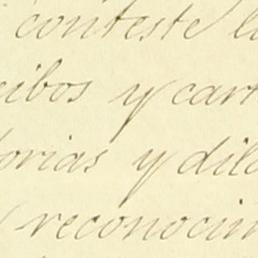 conteste l
cibos y cart
orias y dila
reconocim